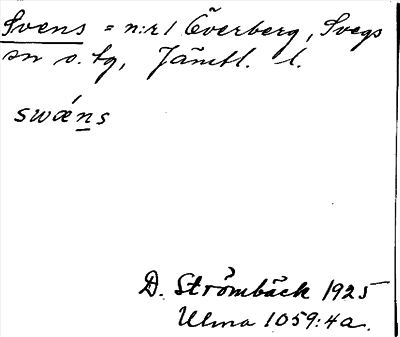 Svens = n:r 1 Överberg, Svegs
sn o. tg, Jämtl. l.
swǽns
D. Strömbäck 1925
Ulma 1059:4a.